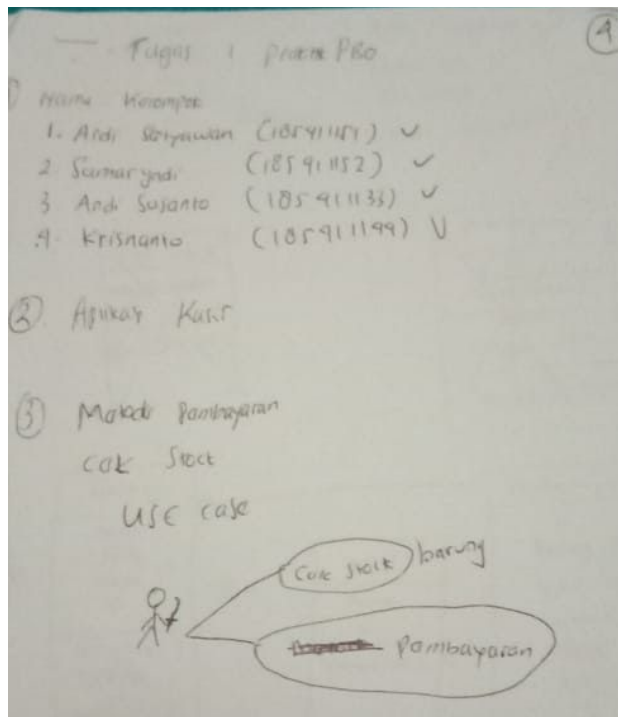 Tugas 1 praktek PBO
4
① Nama Kelompok
1. Ardi Setyawan (185411151)
2 Sumaryadi (185411152)
3 Andi Susanto (185411133)
4. Krisnanto (185411199)
② Aplikasi Kasir
③ Metode Pembayaran
cek Stock
USE case
Cek stock barang
Pembayaran